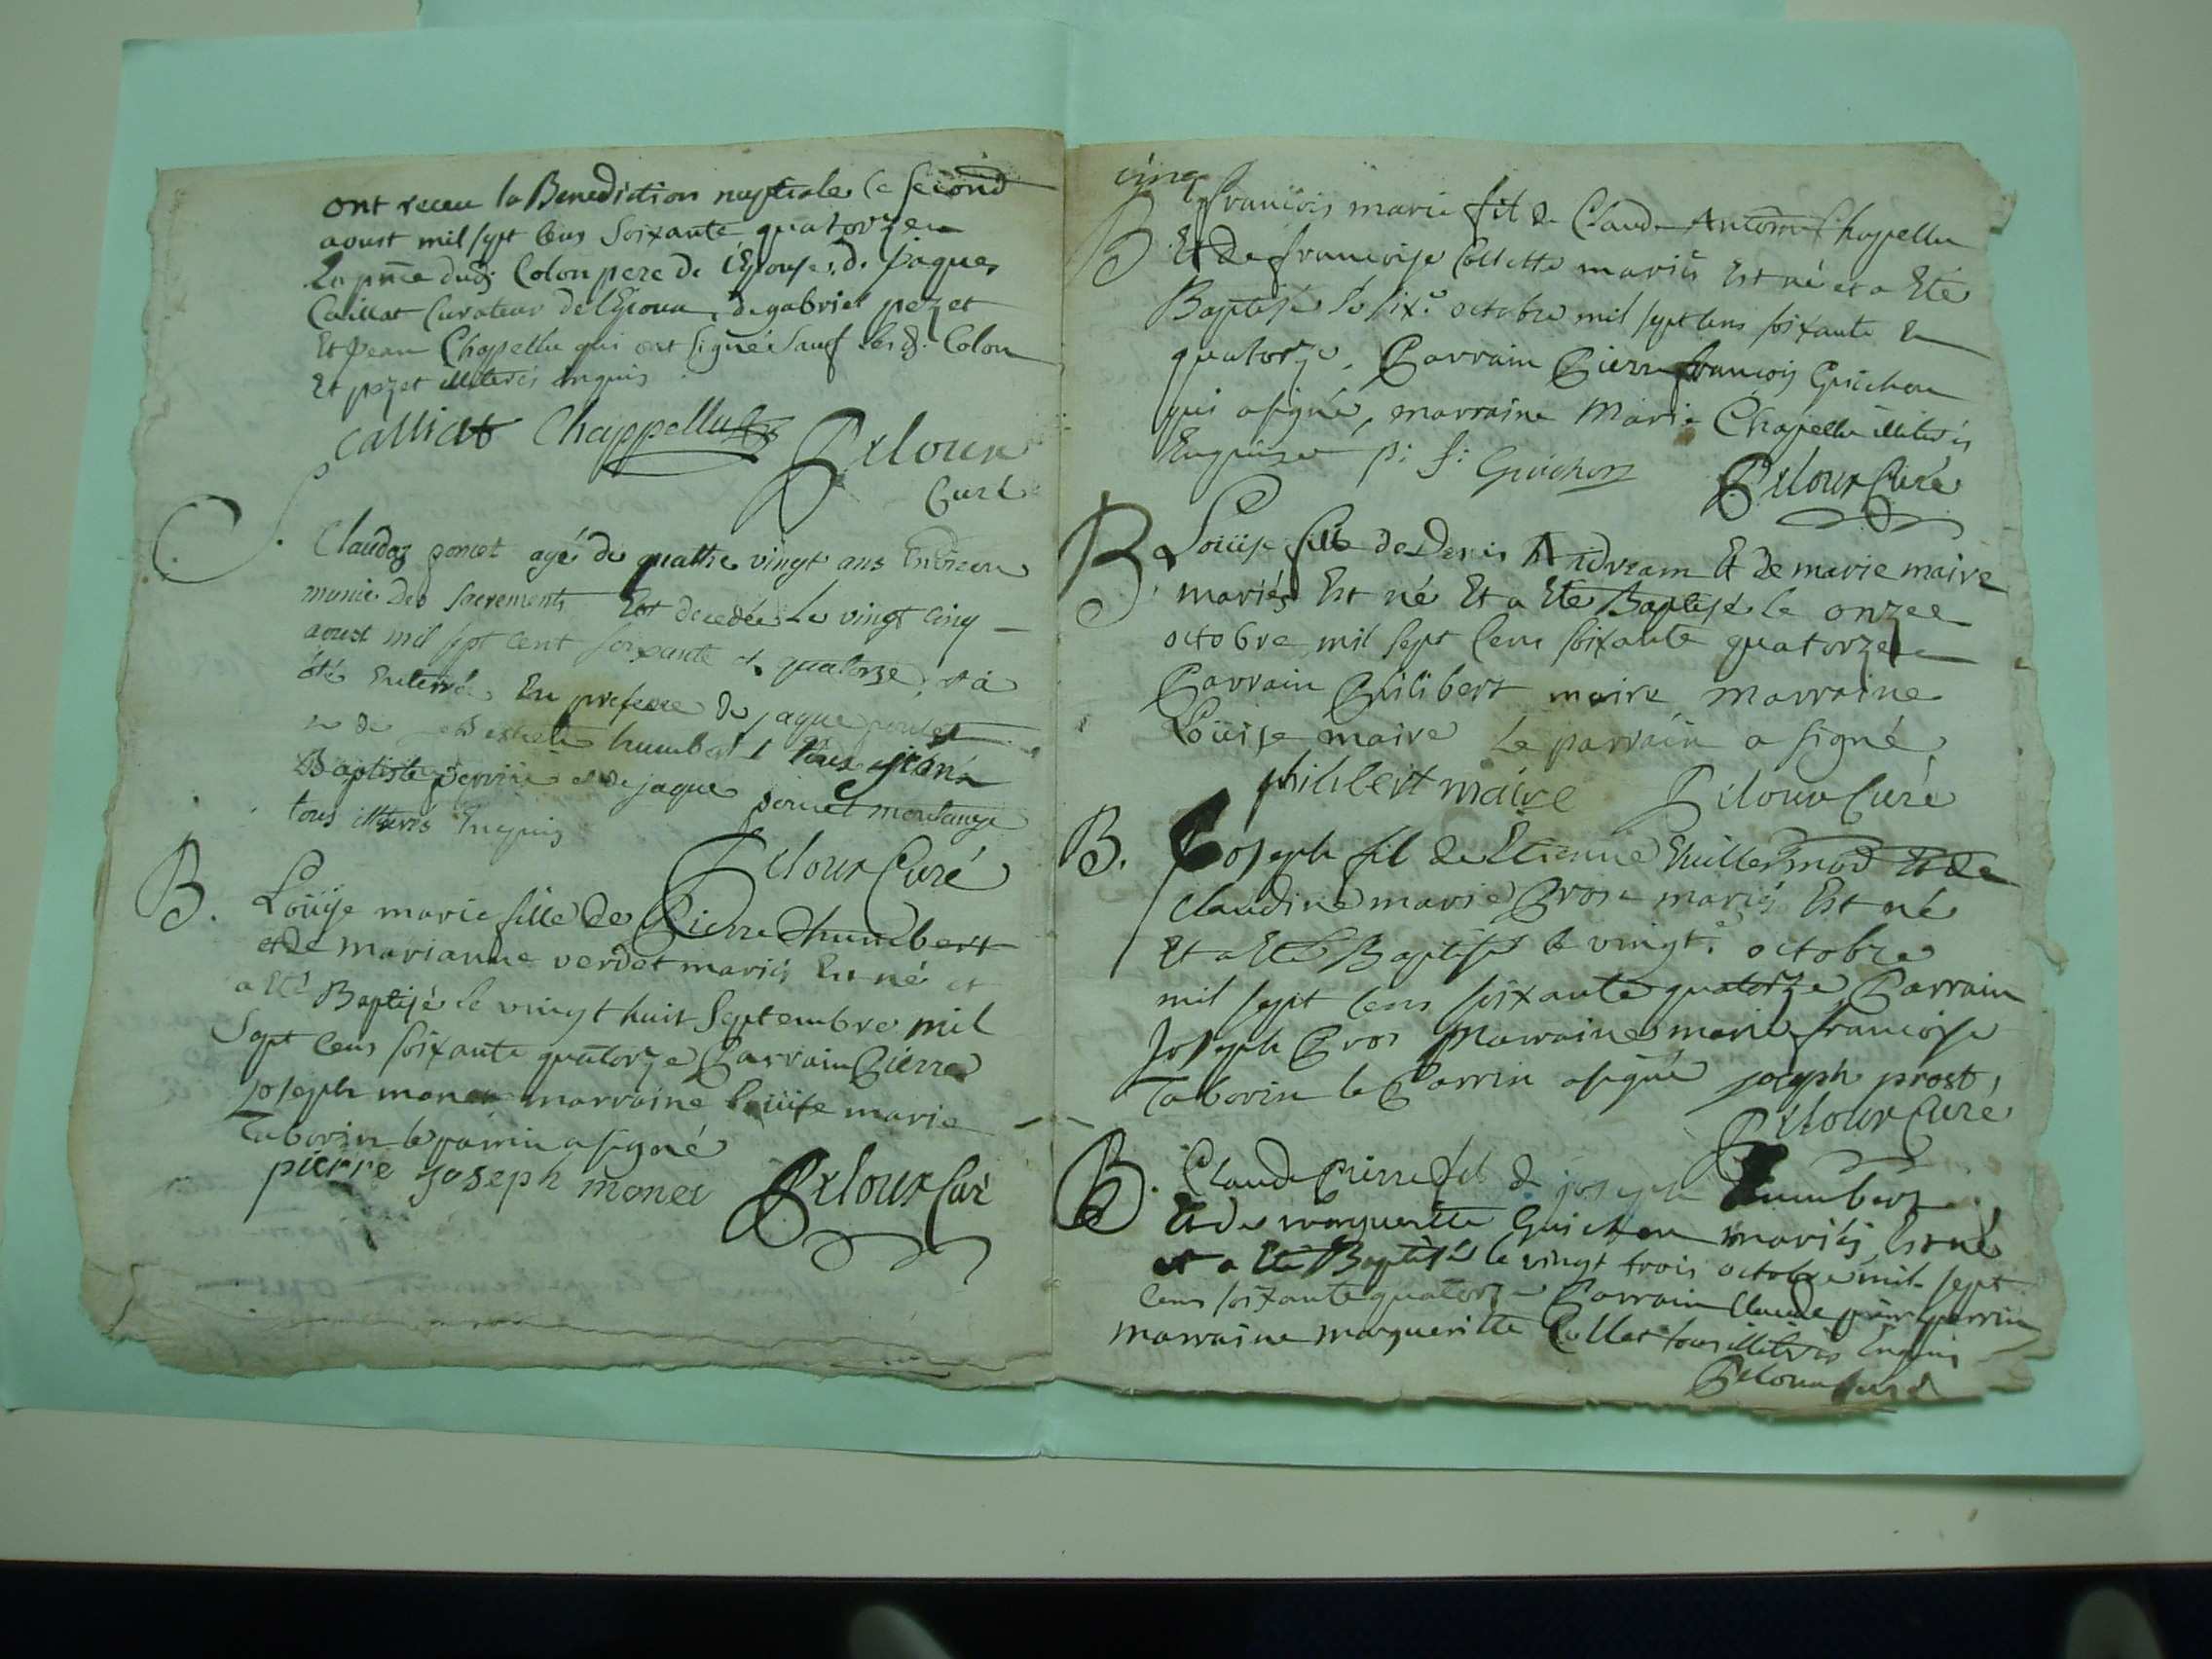 ont receu la Benediction nuptiale le second
aoust mil sept cens soixante quatorze en
la pnce dud. Colon pere de l'Epouse, de jaques
Caillat Curateur de l'Epoux, de gabriel pezet
Et jean Chapellu qui ont signé sauf lesd. Colon
Et pezet illiterés enquis
Calliat Chappellu Peloux
Curé
Claudaz poncet agé de quattre vingt ans Environ
munie des sacrements Est decedée le vingt cinq
aoust mil sept cent soixante et quatorze, et a
été Enterrée En presence de jaque poncet
humbert jean
Baptiste perrin et de jaque poncet
tous illiterés Enquis
Peloux Curé
B. Loüise marie fille de Pierre humbert
et de marianne verdet mariés Est né et
a Eté Baptisé le vingt huit Septembre mil
Sept cens soixante quatorze Parrain Pierre
joseph monet marraine Loüise marie
Taborin le parrin a signé
pierre joseph monet Peloux Curé
cinq
B françois marie fil de Claude Antoine Chapellu
Et de françoise Collette mariés Est né et a Eté
Baptisé le six.e octobre mil sept cens soixante
quatorze, Parrain Pierre françois Guichon
qui a signé, marraine Marie Chapellu illiterés
Enquise p: f: Guichon Peloux Curé
B Loüise fille de Denis Andream Et de marie maire
mariés Est né Et a Eté Baptisé le onze
octobre mil sept cens soixante quatorze
Parrain Philibert maire marraine
Loüise maire Le parrain a signé,
philibert maire Peloux Curé
B. joseph fil de Etienne Vuillermod Et de
Claudine marie Prost mariés Est né
Et a Eté Baptisé le vingt.e octobre
mil sept cens soixante quatorze Parrain
Joseph Pros Marraine marie françoise
Taborin le Parrin a signé joseph prost,
Peloux Curé
B. Claude Pierre fil de joseph humbert
Et de margueritte Guichon mariés Est né
et a Eté Baptisé le vingt trois octobre mil sept
cens soixante quatorze Parrain Claude perrin
marraine marguerite Collet tous illiterés Enquis
Peloux Curé